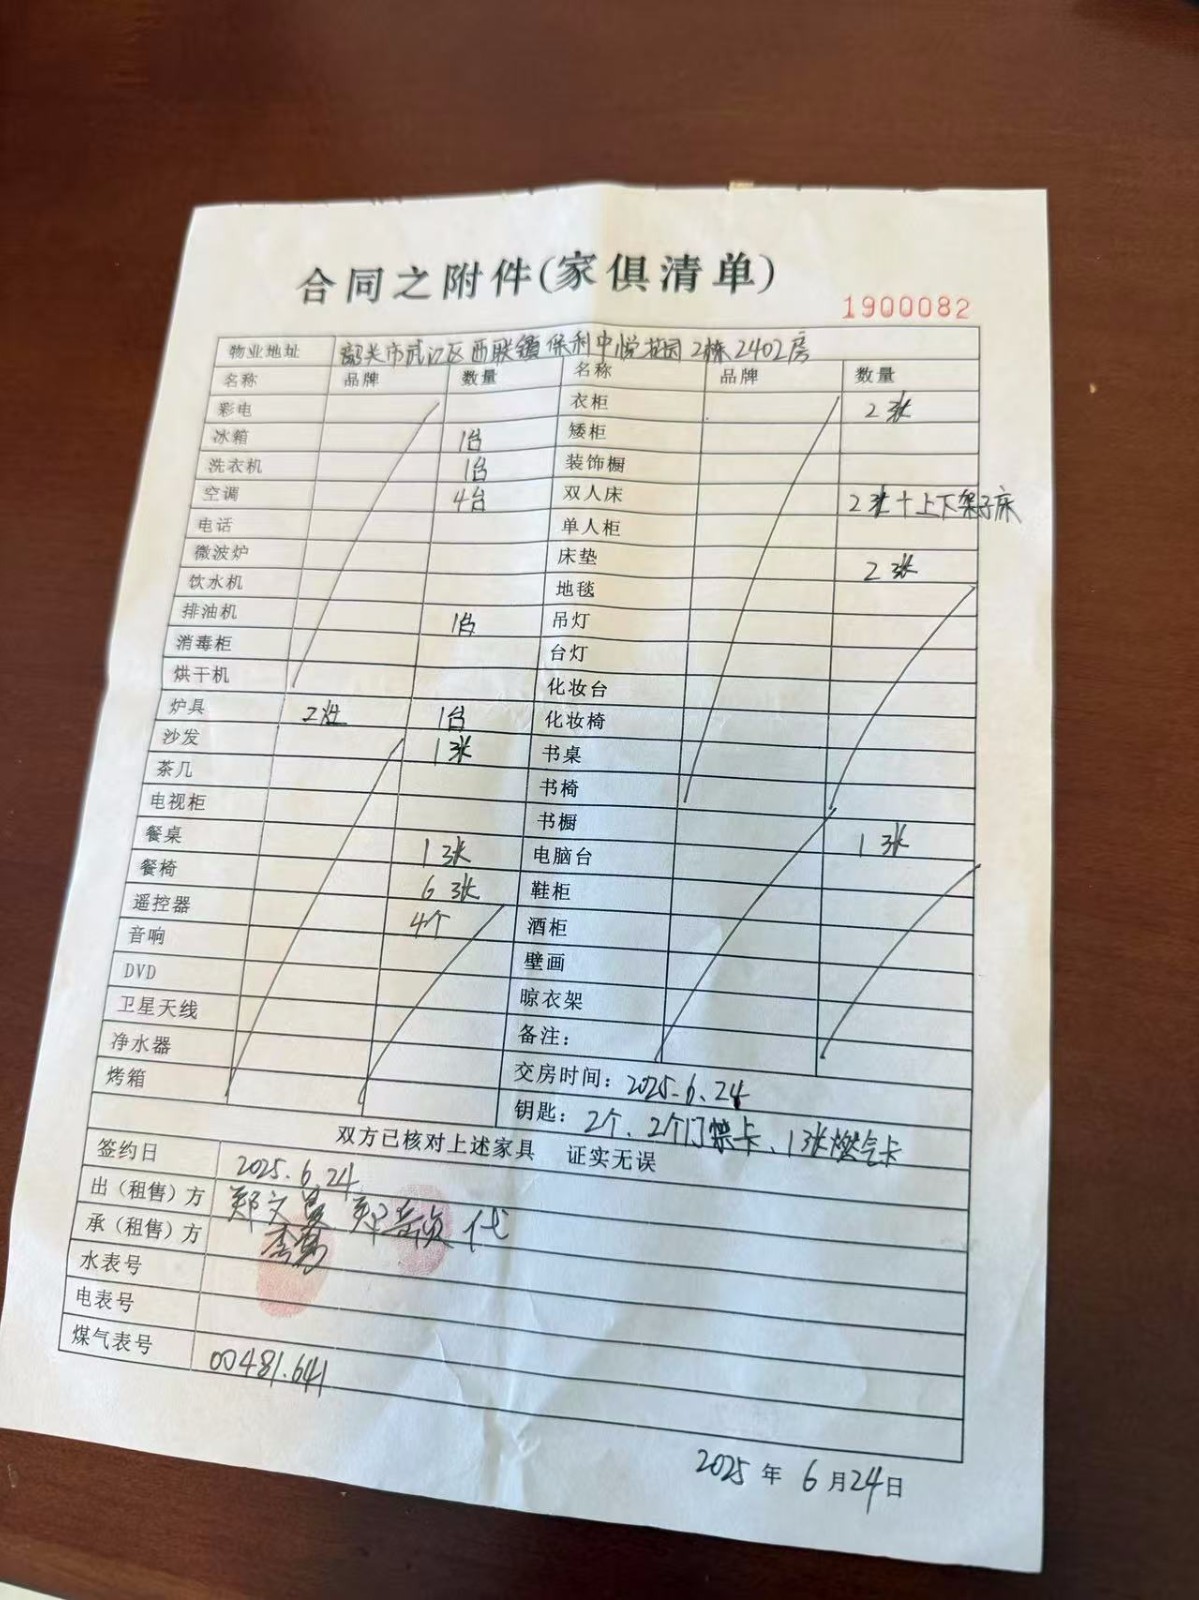 合同之附件(家俱清单)
1900082
物业地址 韶关市武江区西联镇保利中悦花园2栋2402房
名称 品牌 数量 名称 品牌 数量
彩电 衣柜 2张
冰箱 1台 矮柜
洗衣机 1台 装饰橱
空调 4台 双人床 2张+上下架子床
电话 单人柜
微波炉 床垫 2张
饮水机 地毯
排油机 1台 吊灯
消毒柜 台灯
烘干机 化妆台
炉具 2灶 1台 化妆椅
沙发 1张 书桌
茶几 书椅
电视柜 书橱
餐桌 1张 电脑台 1张
餐椅 6张 鞋柜
遥控器 4个 酒柜
音响 壁画
DVD 晾衣架
卫星天线 备注:
净水器 交房时间: 2025.6.24
烤箱 钥匙: 2个、2个门禁卡、1张燃气卡
双方已核对上述家具 证实无误
签约日 2025.6.24
出(租售)方 郑文 郑 代
承(租售)方 李
水表号
电表号
煤气表号 00481.641
2025年6月24日